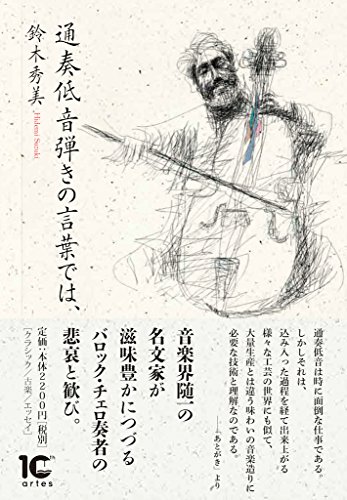 通奏低音弾きの言葉では、
鈴木秀美
Hidemi Suzuki
通奏低音は時に面倒な仕事である。
しかしそれは、
込み入った過程を経て出来上がる
様々な工芸の世界にも似て、
大量生産とは違う味わいの音楽造りに
必要な技術と理解なのである。
——あとがき」より
音楽界随一の
名文家が
滋味豊かにつづる
バロック・チェロ奏者の
悲哀と歓び。
定価:本体2200円[税別]
[クラシック/古楽/エッセイ]
10th
artes